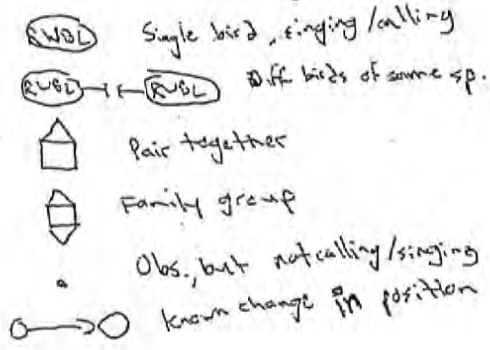 RWBL Single bird, singing/calling
RWBL RWBL Diff birds of same sp.
Pair together
Family group
Obs., but not calling/singing
known change in position